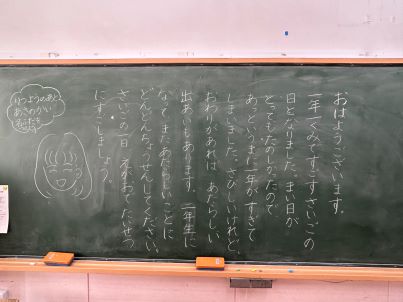 おはようございます。
一年一くみですごすさいごの
日となりました。まい日が
とってもたのしかったので、
あっというまに一年がすぎて
しまいました。さびしいけれど、
おわりがあれば、あたらしい
出あいもあります。二年生に
なってまたあたらしいことに
どんどんちょうせんしてください。
さいごの一日 えがおでたいせつ
にすごしましょう。
あさのかい